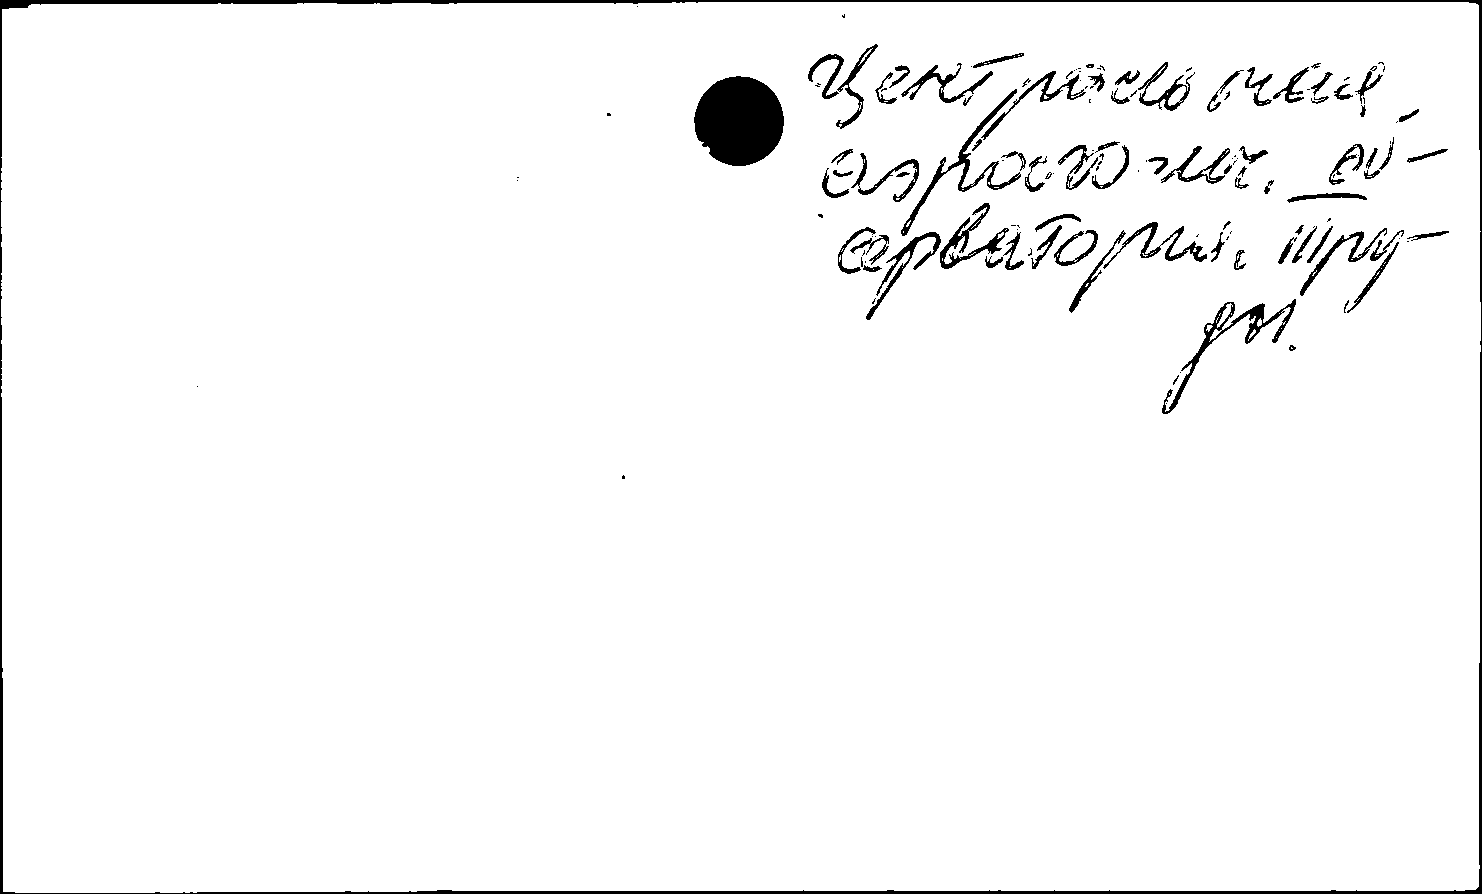 Центральная
аэрологич. об-
серватория. Тру-
ды.